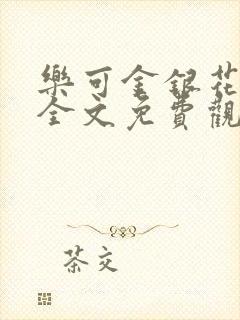 樂可金銀花
全文免費觀
茶交